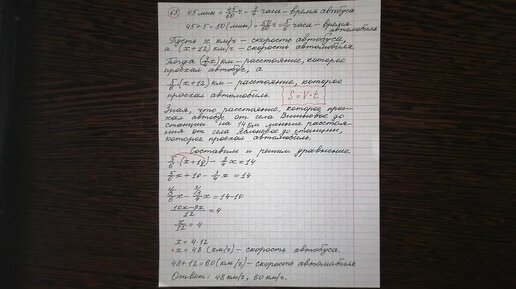 45 мин = 45/60 ч = 3/4 часа - время автобуса
45 + 5 = 50 (мин) = 50/60 ч = 5/6 часа - время автомобиля
Пусть x км/ч - скорость автобуса,
а (x+12) км/ч - скорость автомобиля.
Тогда (3/4x) км - расстояние, которое
проехал автобус, а
5/6·(x+12) км - расстояние, которое
проехал автомобиль. S = V·t
Зная, что расстояние, которое про-
ехал автобус от села Вишнёвое до
станции на 14 км меньше расстоя-
ния от села Яблоневое до станции,
которое проехал автомобиль.
Составим и решим уравнение.
5/6·(x+12) - 3/4x = 14
5/6x + 10 - 3/4x = 14
5/6x - 3/4x = 14-10
10x-9x/12 = 4
x/12 = 4
x = 4·12
x = 48 (км/ч) - скорость автобуса.
48+12 = 60 (км/ч) - скорость автомобиля
Ответ: 48 км/ч, 60 км/ч.